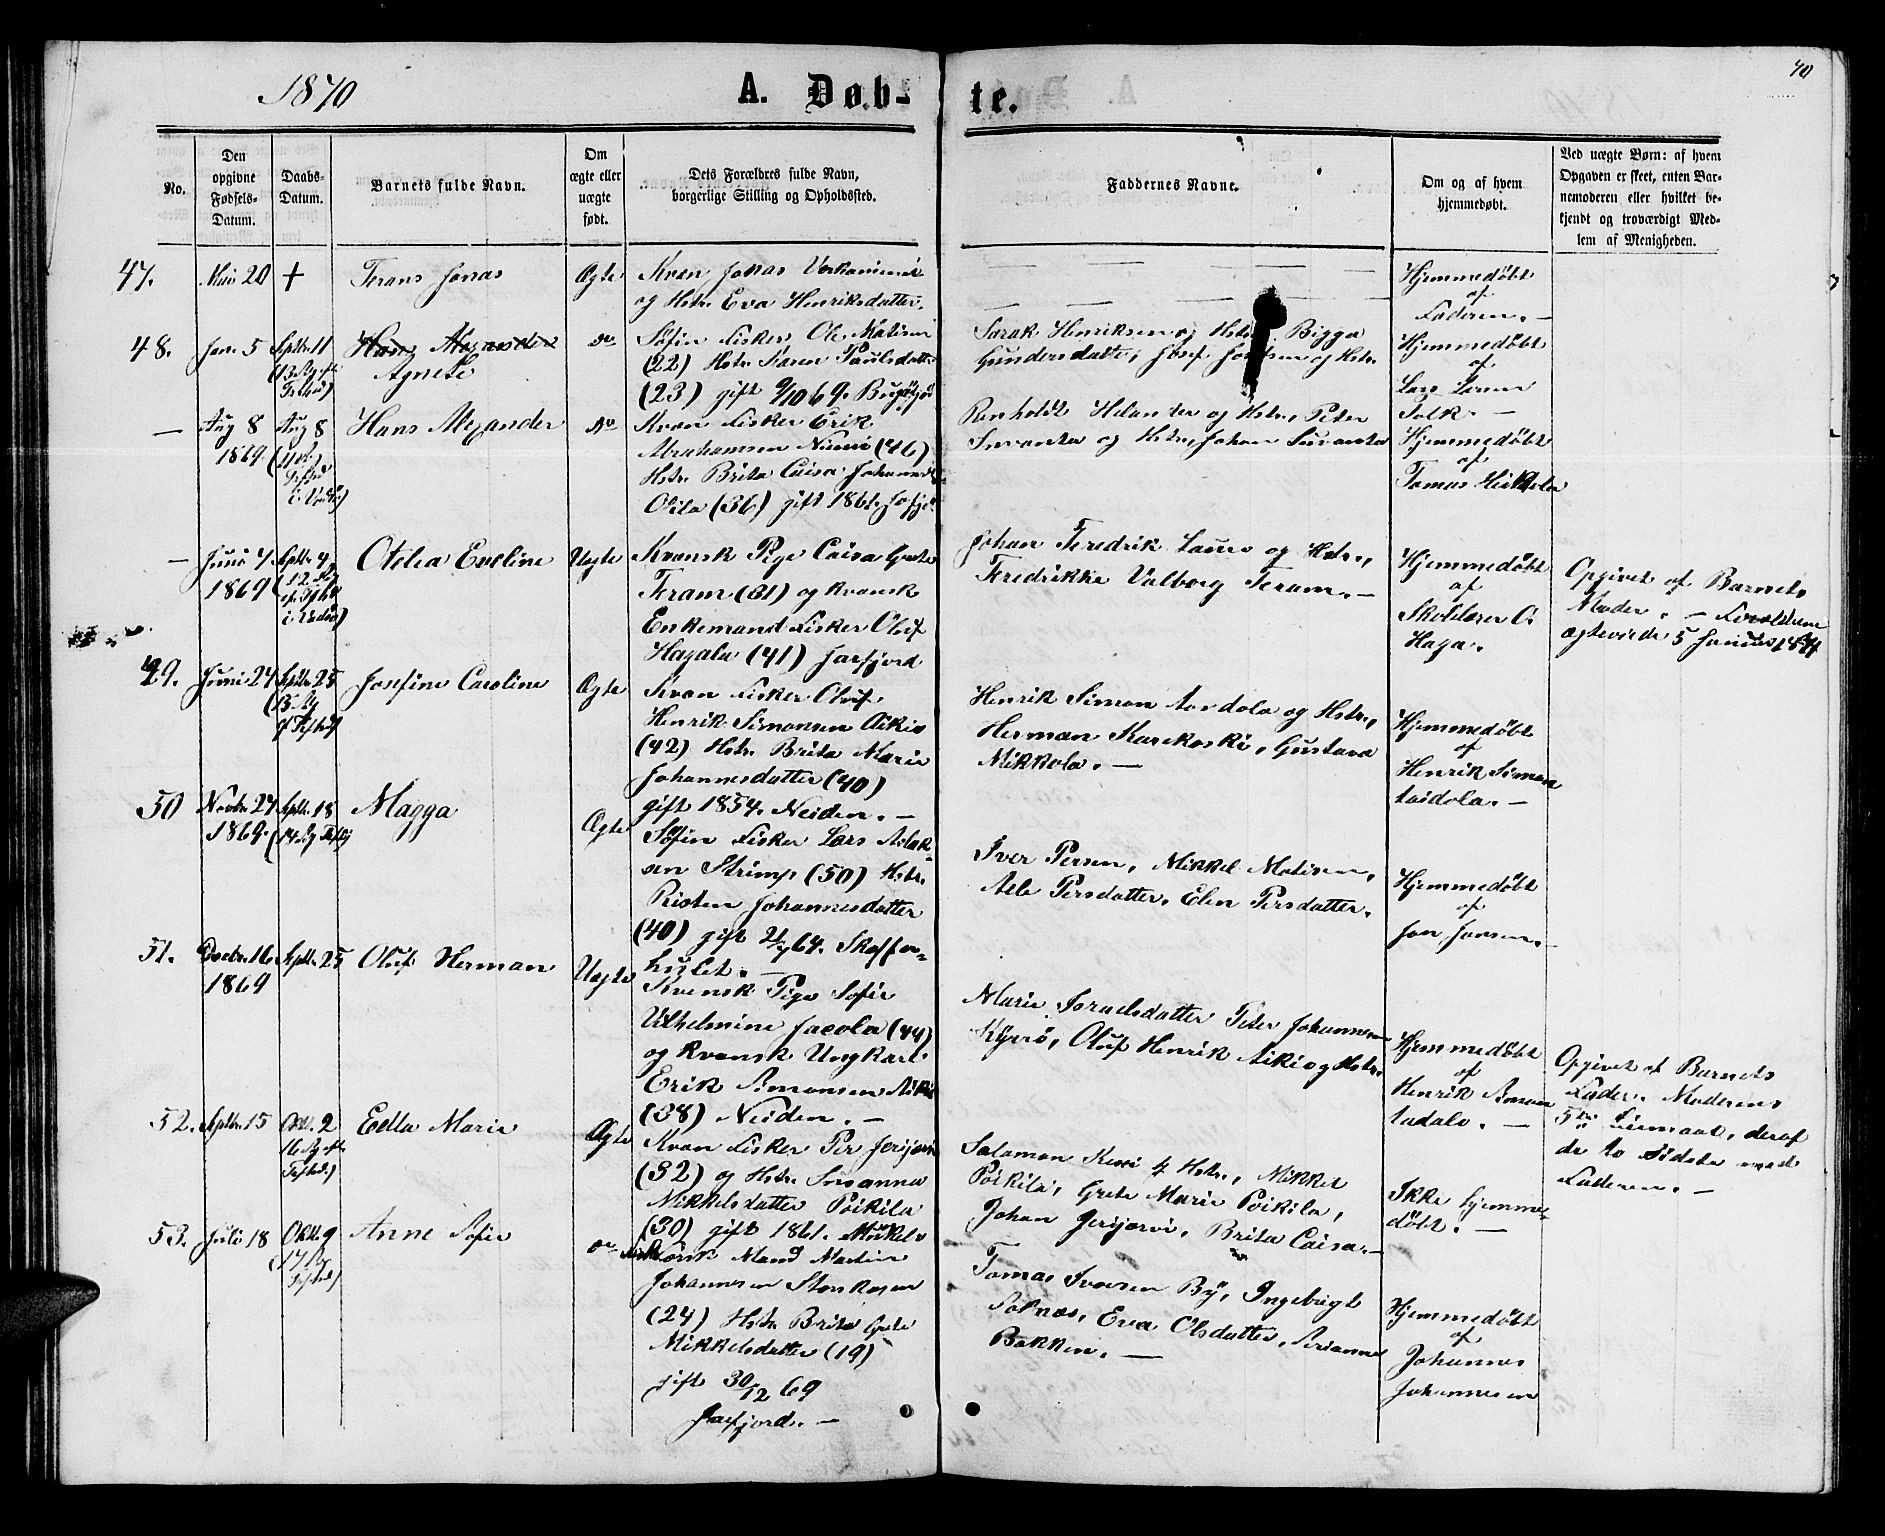 1870
A. Døb-
te.
40
No.
Den
opgivne
Fødsels-
Datum.
Daabs-
Datum.
Barnets fulde Navn.
Om
ægte eller
uægte
født.
Dets Forældres fulde Navn,
borgerlige Stilling og Opholdssted.
Faddernes Navne.
Om og af hvem
hjemmedøbt.
Ved uægte Børn: af hvem
Opgaven er skeet, enten Bar-
nemoderen eller hvilket be-
kjendt og troværdigt Med-
lem af Menigheden.
47.
Mai 20
+
Frans Jonas
Ægte
Kvæn Jonas
og Hstr. Eva Henriksdatter.
Hjemmedøbt
af
Faderen. —
48.
Jan. 5
Septbr. 11
Hans Alexander
Agnete
do
Søfin Fisker Ole Matisen
(22) Hstr. Karen Paulsdatter
(23) gift 9/10 69. Bugøfjord
Sarak Henriksen og Hstr. Bigga
Gundersdatter, Josef Josefsen og Hstr.
Hjemmedøbt
af
Lars Larsen
—
Aug 8
1869.
Aug 8
Hans Alexander
do
Kvæn Fisker Erik
Abrahamsen Niemi (46)
Hstr. Brita Caisa Johannesd.
Oila (36) gift 1861. Jarfj.
Renholdt Helander og Hstr., Peter
Suvanta og Hstr., Johan Suvanta
Hjemmedøbt
af
Tomas Heikkela
—
Juni 4
1869
Septbr. 4
Otelia Eveline
Uægte
Kvænsk Pige Caisa Grete
Feram (31) og Kvænsk
Enkemand Fisker Oluf
Hagala (41) Jarfjord
Johan Fredrik Lauro og Hstr.,
Fredrikke Valborg Feram. —
Hjemmedøbt
af
Skolelærer O.
Haga.
Opgivet af Barnets
Moder. — Forældrene
ægteviede 5 Januar 1871
49.
Juni 24
Septbr. 25
Josefine Caroline
Ægte
Kvæn Fisker Oluf
Henrik Simonsen Aikio
(42) Hstr. Brita Marie
Johannesdatter (40)
gift 1854. Neiden. —
Henrik Simon Aardola og Hstr.,
Herman Karikoski, Gustava
Mikkola. —
Hjemmedøbt
af
Henrik Simon
50
Novbr. 27
1869.
Septbr. 18
Magga
Ægte
Søfin Fisker Lars Aslak-
sen Strimp (50) Hstr.
Risten Johannesdatter
(40) gift 21/7 64. Skoffer-
hulet. —
Iver Persen, Mikkel Matisen,
Ale Persdatter, Elen Persdatter.
Hjemmedøbt
af
Jon Jonsen. —
51.
Decbr. 16.
1869
Septbr. 25
Oluf Herman
Uægte
Kvensk Pige Sofie
Vilhelmine Jacola (44)
og Kvænsk Ungkarl
Erik Simonsen Aikio
(38) Neiden. —
Marie Israelsdatter Peter Johannesen
Kyrrö, Oluf Henrik Aiki og Hstr.
Hjemmedøbt
af
Henrik Simon
Opgivet af Barnets
Fader. Moderens
5te Leiermaal, deraf
de to sidste med
Faderen. —
52.
Septbr. 15
Oct. 2
Edla Marie
Ægte
Kvæn Fisker Per Jerijærvi
(32) og Hstr. Susanna
Mikkelsdatter Poikila
(30) gift 1861.
Salamon & Hstr., Mikkel
Poikila, Grete Marie Poikila,
Johan Jerijærvi, Brita Caisa. —
Ikke hjemme-
døbt. —
53.
Juli 18
Oktbr. 9
Anne Sofie
do
Norsk Mand Martin
Johannesen Stenkasen
(24) Hstr Brita Grete
Mikkelsdatter (19)
gift 30/12 69
Jarfjord. —
Tomas Iversen By, Ingebrigt
Solnæs, Eva Olsdatter,
Bakken. —
Hjemmedøbt
af
Johannes
Johannesen